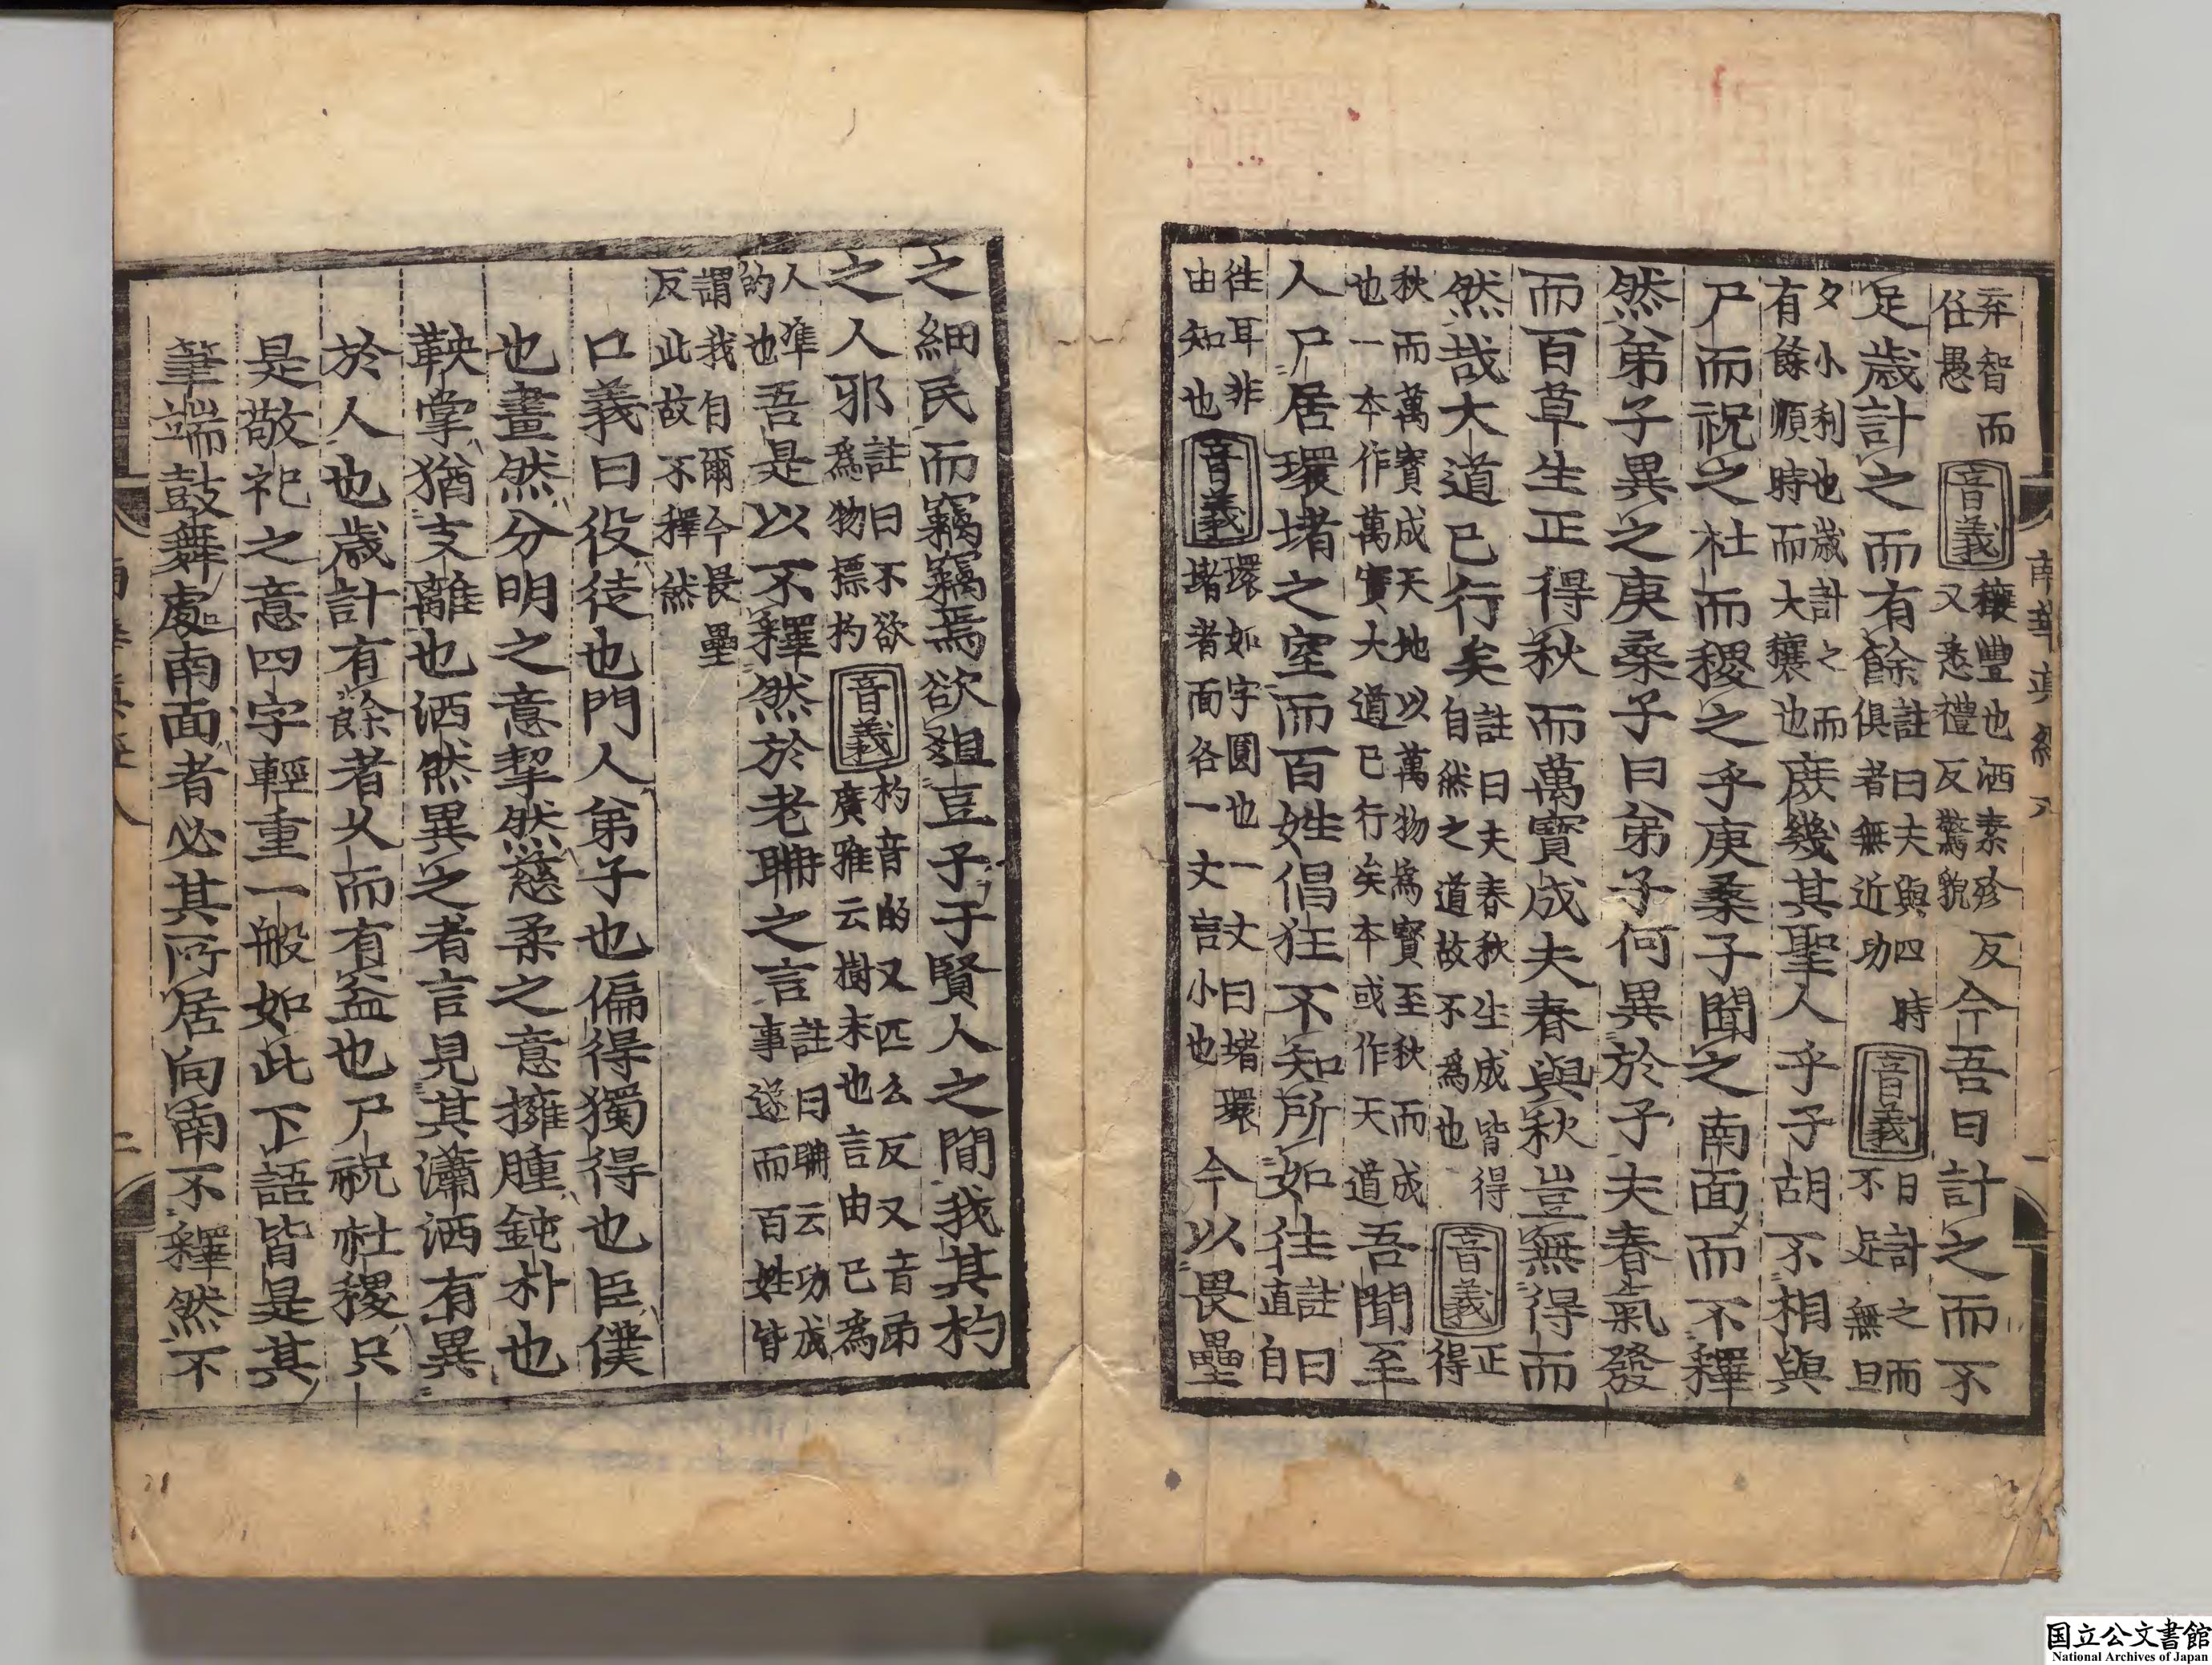 南華真經八 一
弃智而任愚音義穰豐也洒素殄反又悉禮反驚貌今吾日計之而不
足歲計之而有餘註曰夫與四時俱者無近功音義日計之而不足無旦
夕小利也歲計之而有餘順時而大穰也庶幾其聖人乎子胡不相與
尸而祝之社而稷之乎庚桑子聞之南面而不釋
然弟子異之庚桑子曰弟子何異於子夫春氣發
而百草生正得秋而萬寶成夫春與秋豈無得而
然哉大道已行矣註曰夫春秋生成皆得自然之道故不爲也音義正得
秋而萬寶成天地以萬物爲寶至秋而成也一本作萬實大道已行矣本或作天道吾聞至
人尸居環堵之室而百姓倡狂不知所如往註曰直自
往耳非由知也音義環如字圓也一丈曰堵環堵者面各一丈言小也今以畏壘
之細民而竊竊焉欲爼豆予于賢人之間我其杓
之人邪註曰不欲爲物標杓音義杓音的又匹么反又音弔廣雅云樹末也言由已爲
人凖的也吾是以不釋然於老聃之言註曰聃云功成事遂而百姓皆
謂我自爾今畏壘反此故不釋然
口義曰役徒也門人弟子也偏得獨得也臣僕
也畫然分明之意挈然慈柔之意擁腫鈍朴也
鞅掌猶支離也洒然異之者言見其瀟洒有異
於人也歲計有餘者久而有益也尸祝社稷只
是敬祀之意四字輕重一般如此下語皆是其
筆端鼓舞處南面者必其所居向南不釋然不
国立公文書館
National Archives of Japan